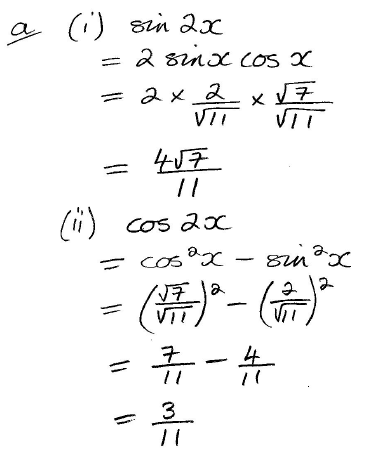 a (i) sin 2x
= 2 sinx cos x
= 2 × 2/√11 × √7/√11
= 4√7/11
(ii) cos 2x
= cos²x − sin²x
= (√7/√11)² − (2/√11)²
= 7/11 − 4/11
= 3/11